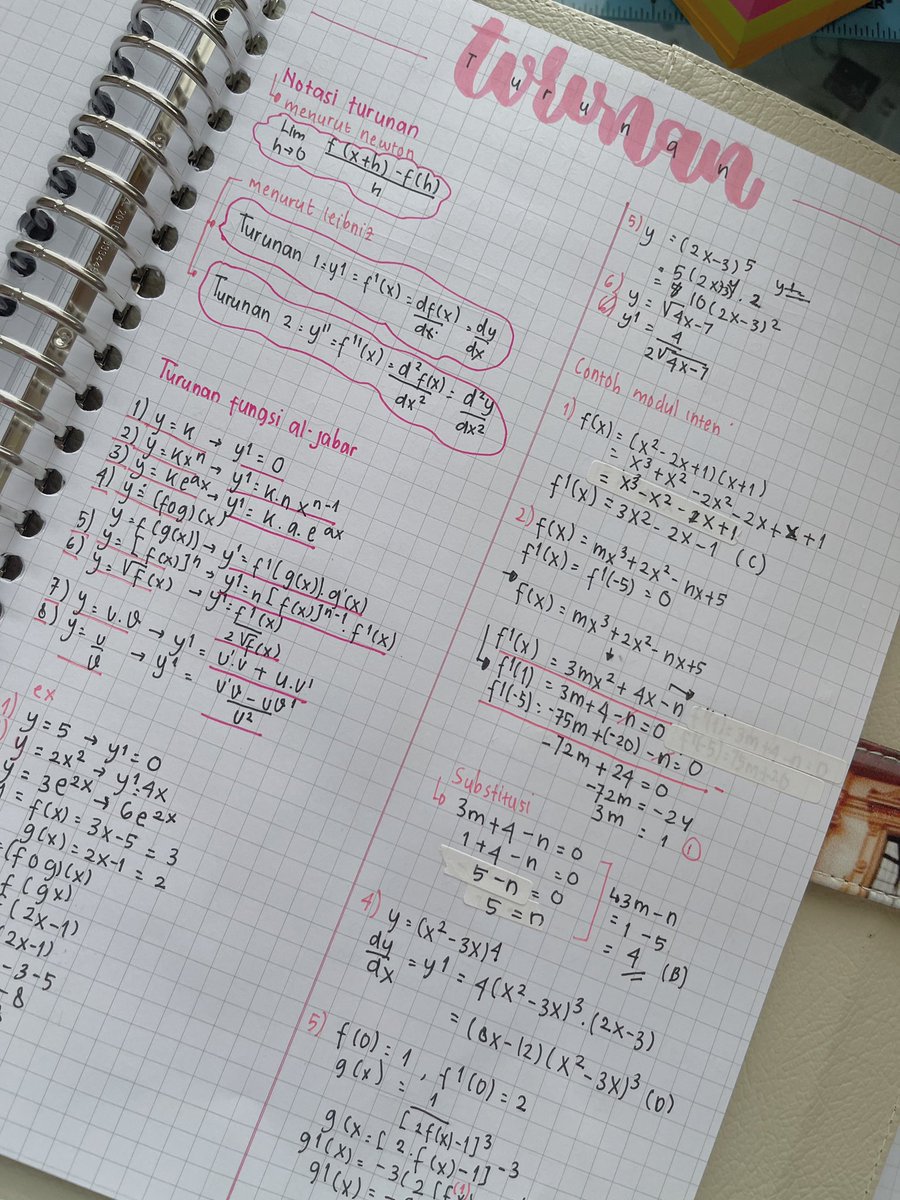 turunan
Turunan
Notasi turunan
↳ menurut newton
Lim h→0 f(x+h) - f(h) / h
menurut leibniz
Turunan 1 = y' = f'(x) = df(x)/dx = dy/dx
Turunan 2 = y'' = f''(x) = d²f(x)/dx² = d²y/dx²
Turunan fungsi al-jabar
1) y = k → y' = 0
2) y = kxⁿ → y' = k.n xⁿ⁻¹
3) y = ke^ax → y' = k.a.e^ax
4) y = (fog)(x)
y = f(g(x)) → y' = f'(g(x)).g'(x)
5) y = [f(x)]ⁿ → y' = n[f(x)]ⁿ⁻¹.f'(x)
6) y = √f(x) → y' = f'(x) / 2√f(x)
7) y = u.v → y' = u'.v + u.v'
8) y = u/v → y' = u'v - uv' / v²
ex
1) y = 5 → y' = 0
y = 2x² → y' = 4x
y = 3e^2x → 6e^2x
f(x) = 3x-5 = 3
g(x) = 2x-1 = 2
(fog)(x)
f(gx)
(2x-1)
(2x-1)
-3-5
-8
5) y = (2x-3)⁵
. 2
10(2x-3)²
6) y = √4x-7
y' = 4 / 2√4x-7
Contoh modul inten:
1) f(x) = (x²-2x+1)(x+1)
= x³+x²-2x²-2x+x+1
= x³-x²-x+1
f'(x) = 3x²-2x-1 (C)
2) f(x) = mx³+2x²-nx+5
f'(x) = f'(-5) = 0
→ f(x) = mx³+2x²-nx+5
f'(x) = 3mx²+4x-n
f'(1) = 3m+4-n = 0
f'(-5) = -75m+(-20)-n = 0
-72m+24 = 0
-72m = -24
3m = 1 ①
Substitusi
↳ 3m+4-n = 0
1+4-n = 0
5-n = 0
5 = n
43m-n
= 1-5
= 4 (B)
4) y = (x²-3x)⁴
dy/dx = y' = 4(x²-3x)³.(2x-3)
= (8x-12)(x²-3x)³ (D)
5) f(0) = 1, f'(0) = 2
g(x) = 1 / [2f(x)-1]³
g(x = [2.f(x)-1]⁻³
g'(x) = -3(2[f
g'(x) = -